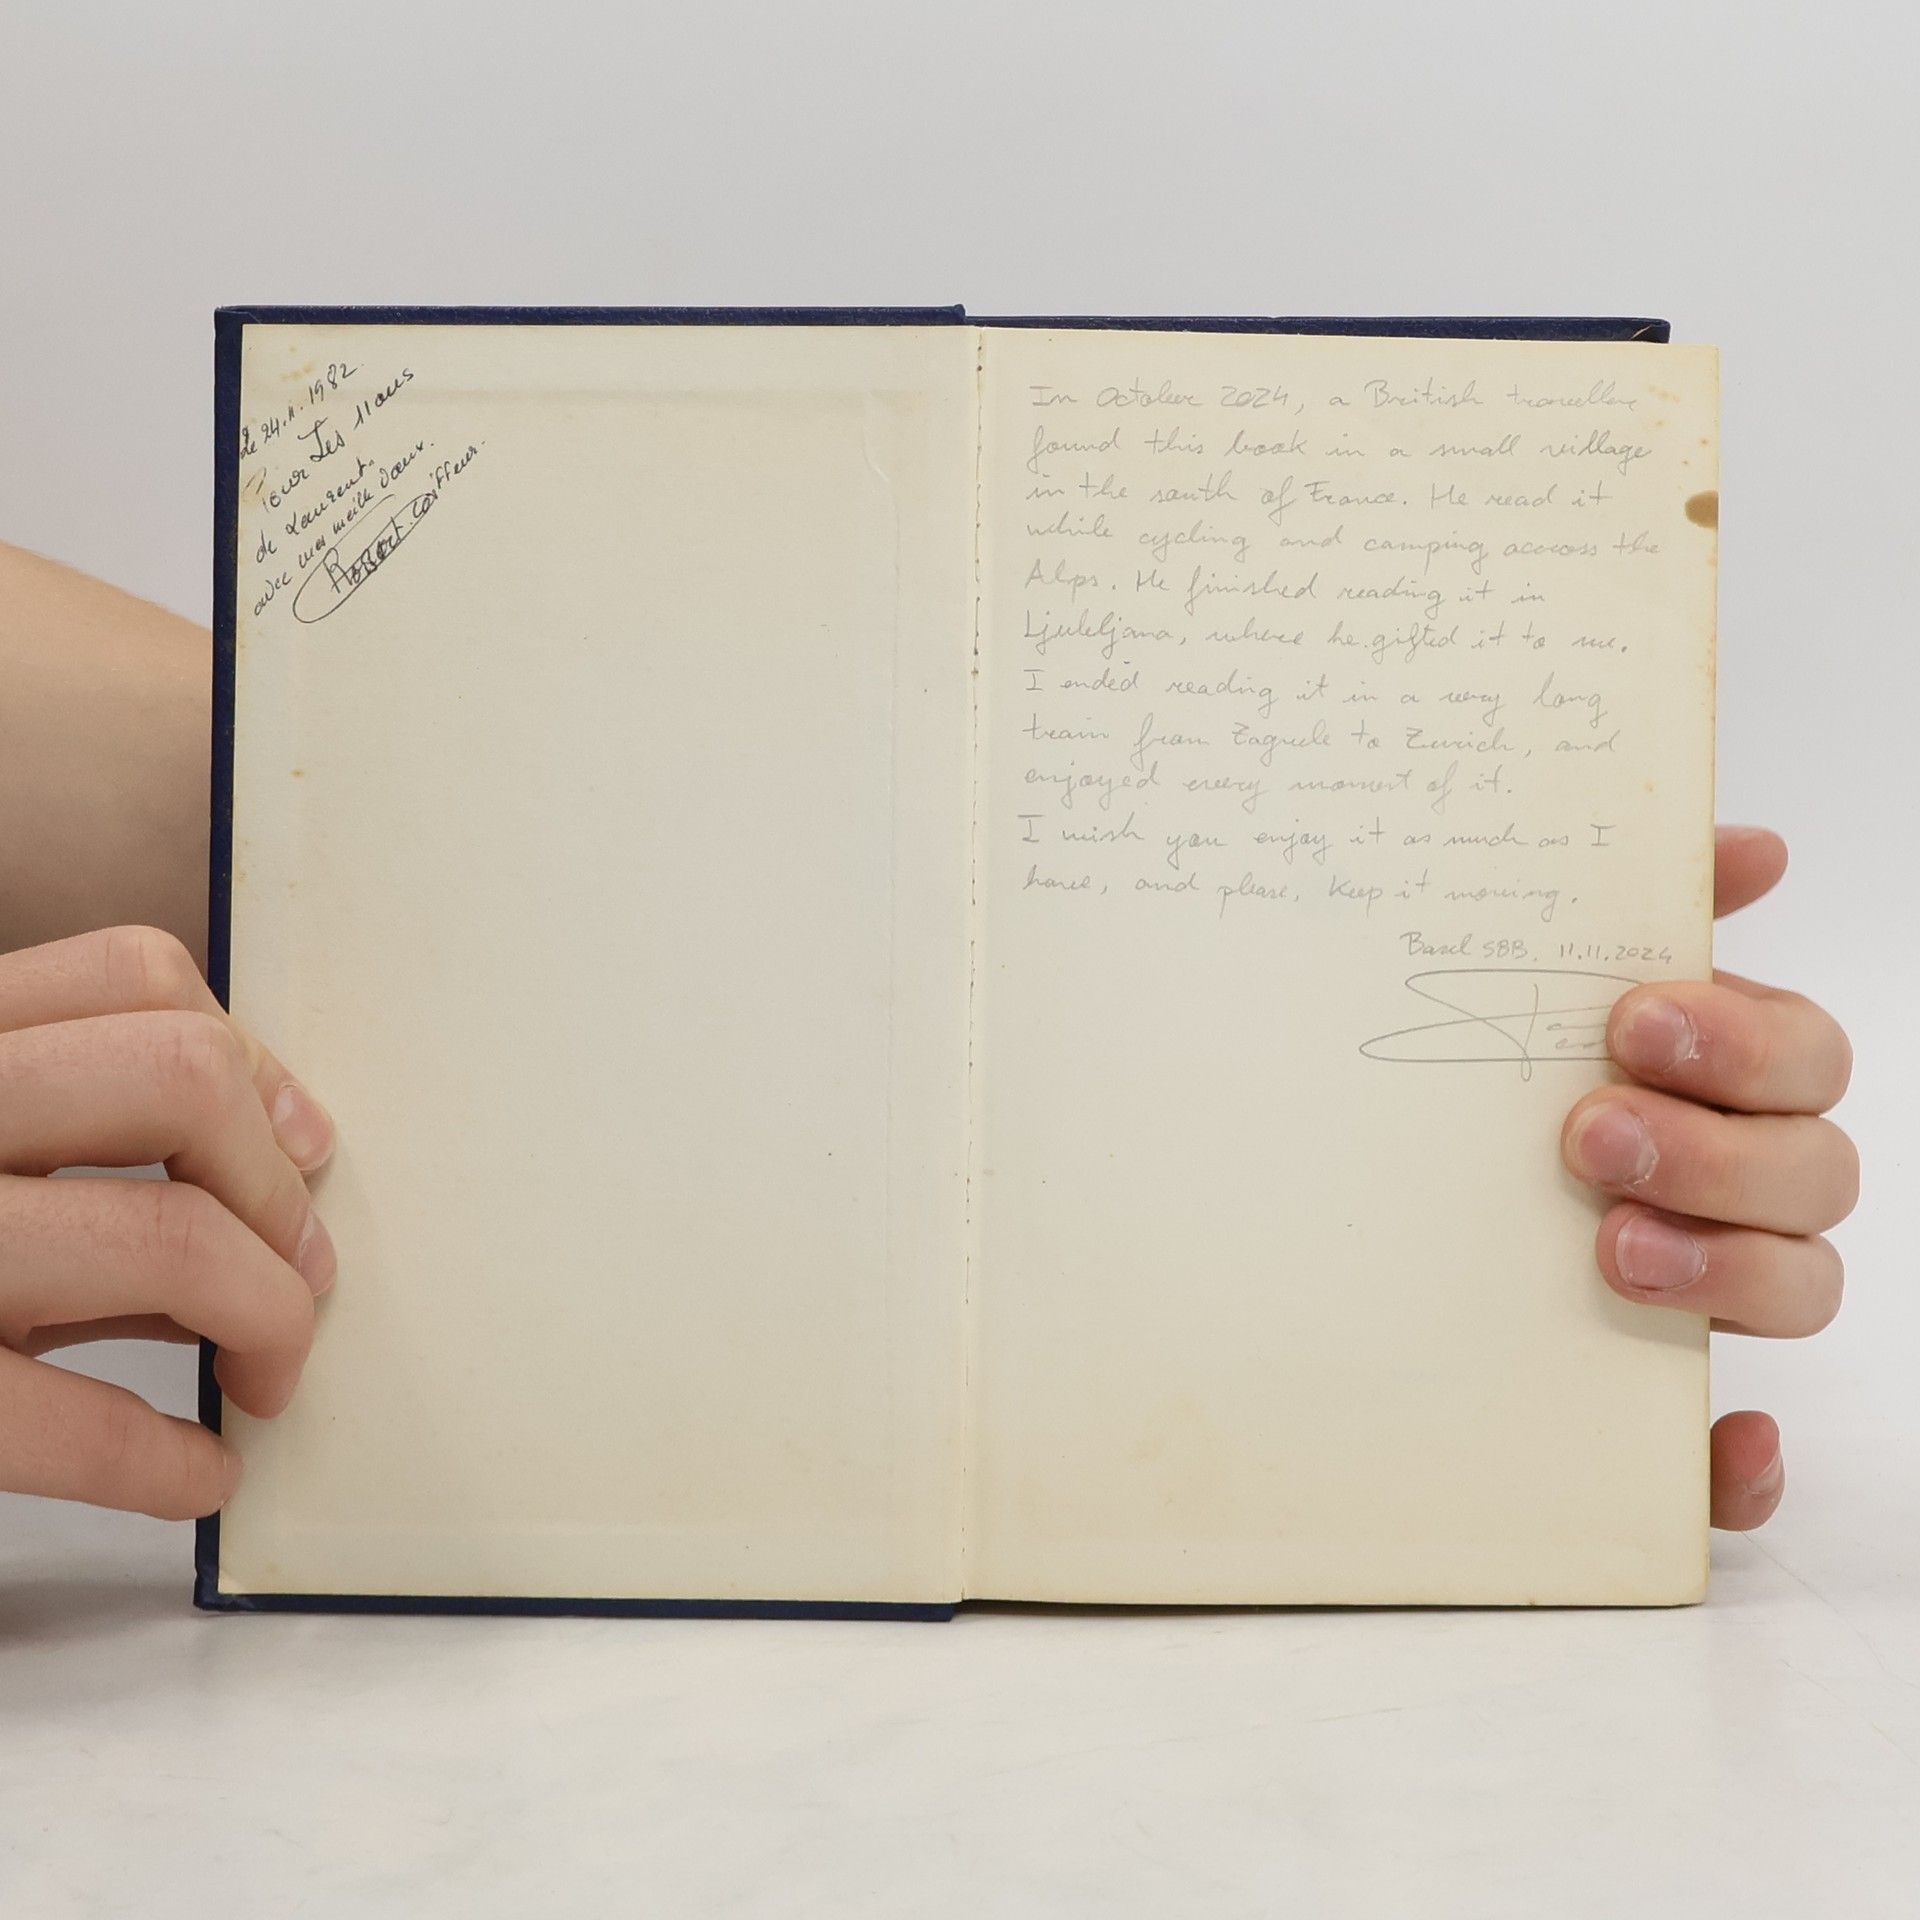 Le 24.11.1982.
Pour Les 11 ans
de Laurent.
avec mes meill. Vœux.
Robert. Coiffeur.
In October 2024, a British traveller
found this book in a small village
in the south of France. He read it
while cycling and camping across the
Alps. He finished reading it in
Ljubljana, where he gifted it to me.
I ended reading it in a very long
train from Zagreb to Zurich, and
enjoyed every moment of it.
I wish you enjoy it as much as I
have, and please, keep it moving.
Basel SBB, 11.11.2024